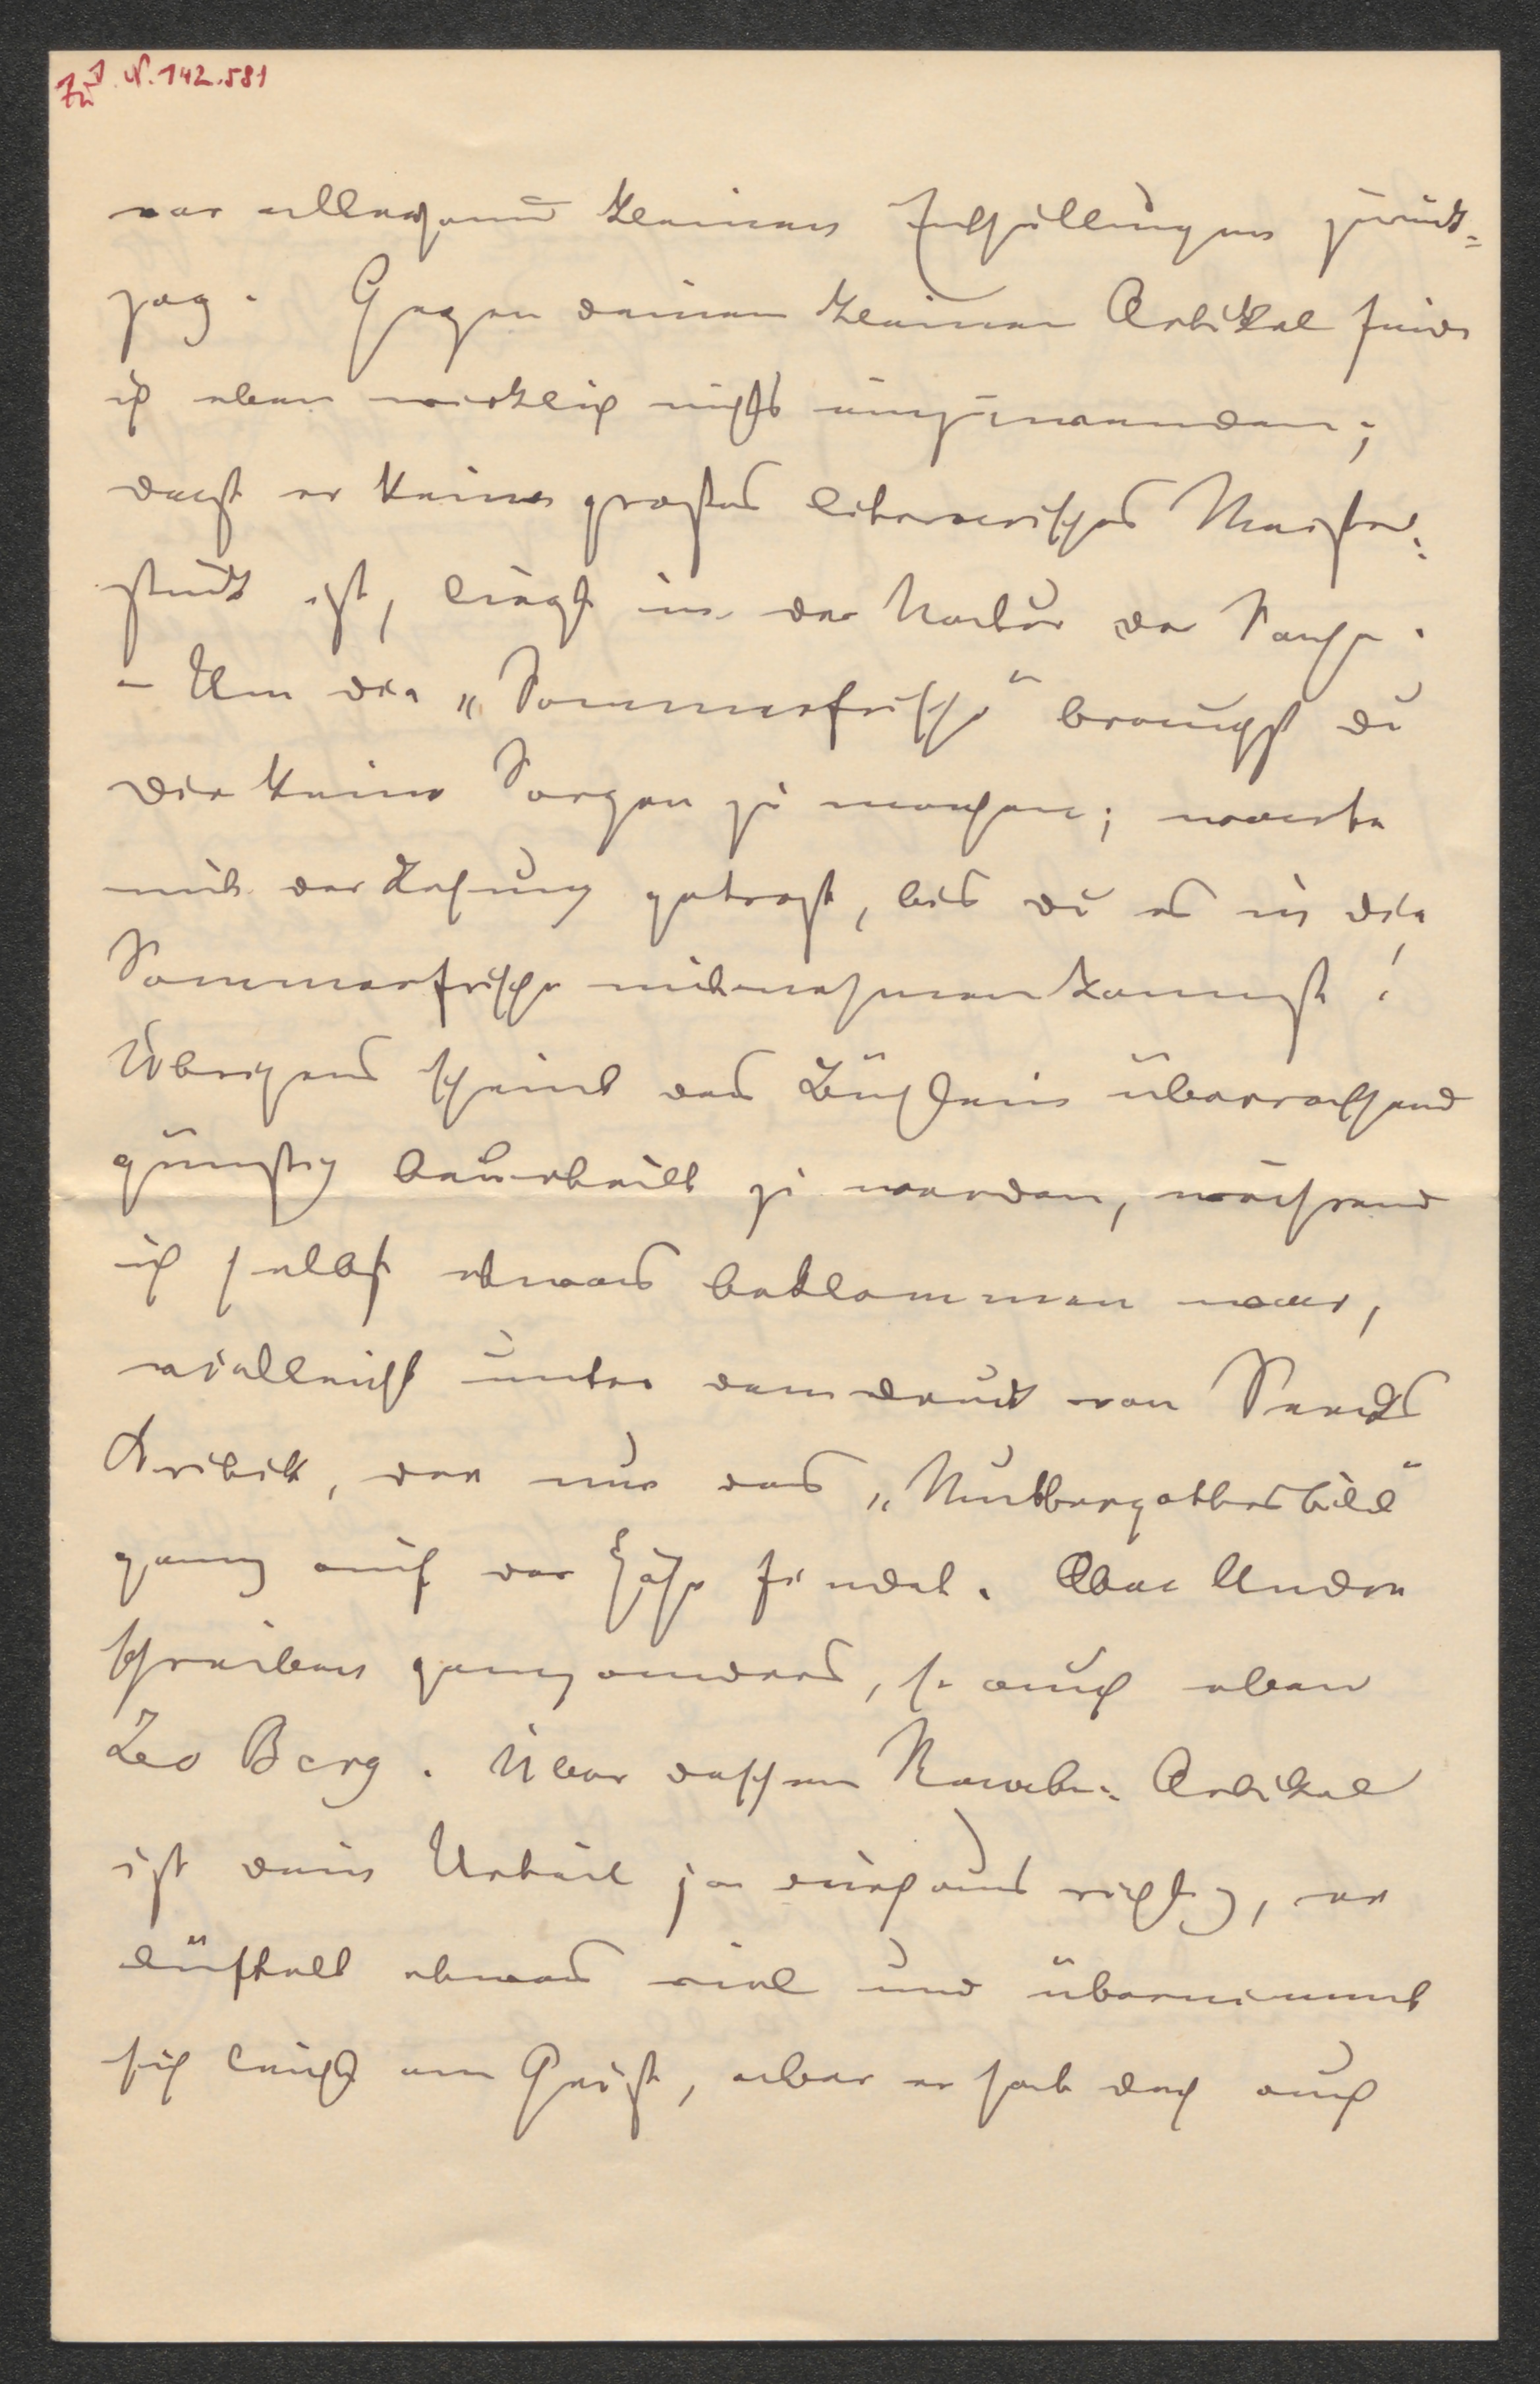 Zu I. N. 142.581
vor allerhand kleinen Enthüllungen zurück=
zog. Gegen deinen kleinen Artikel finde
ich aber wirklich nichts einzuwenden;
dass er kein grosses literarisches Meister=
stück ist, liegt in der Natur der Sache.
– Um die „Sommerfrische" brauchst du
dir keine Sorgen zu machen; warte
mit der Lesung getrost, bis du es in die
Sommerfrische mitnehmen kannst!
Übrigens scheint das Büchlein überraschend
günstig beurtheilt zu werden, während
ich selbst etwas beklommen war,
vielleicht unter dem Druck von
Kritik, der nur das „Muttergottesbild"
ganz auf der Höhe findet. Aber Andre
schreiben ganz anders, so auch eben
Leo Berg. Über dessen Artikel
ist dein Urteil ja durchaus richtig, er
tüftelt etwas viel und übernimmt
sich leicht am Geist, aber er hat doch auch